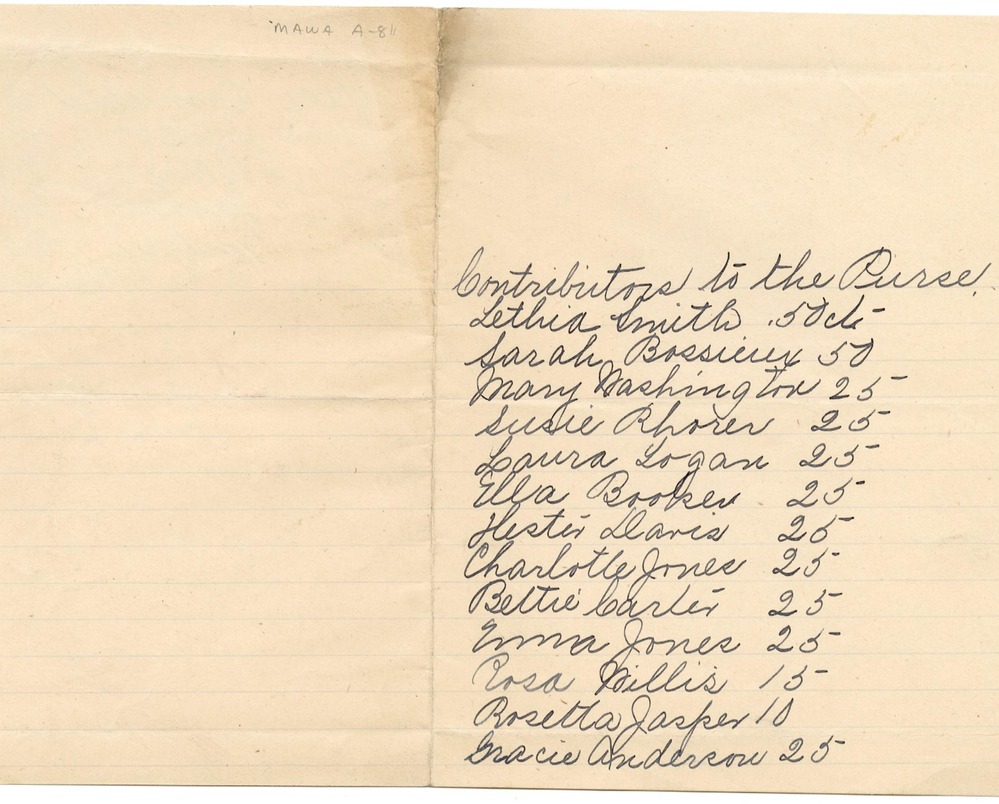 MAWA A-8
Contributors to the Purse.
Lethia Smith .50cts
Sarah Bossieux 50
Mary Washington 25
Susie Rhorer 25
Laura Logan 25
Ella Booker 25
Hester Davis 25
Charlotte Jones 25
Bettie Carter 25
Emma Jones 25
Rosa Willis 15
Rosetta Jasper 10
Gracie Anderson 25